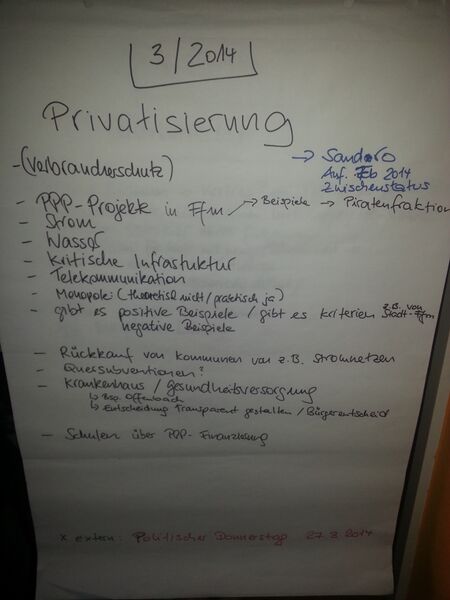 3/2014
Privatisierung
- (Verbraucherschutz)
→ Sandro
Anf. Feb 2014
Zwischenstatus
- PPP-Projekte in Ffm → Beispiele → Piratenfraktion
- Strom
- Wasser
- Kritische Infrastuktur
- Telekommunikation
- Monopole (theoretisch nicht / praktisch ja)
- gibt es positive Beispiele / gibt es kriterien z.B. von Stadt-Ffm
negative Beispiele
- Rückkauf von Kommunen von z.B. Stromnetzen
- Quersubventionen?
- Krankenhaus / Gesundheitsversorgung
↳ Bsp. Offenbach
↳ Entscheidung Transparent gestalten / Bürgerentscheid
- Schulen über PPP-Finanzierung
x extern: Politischer Donnerstag 27.3.2014